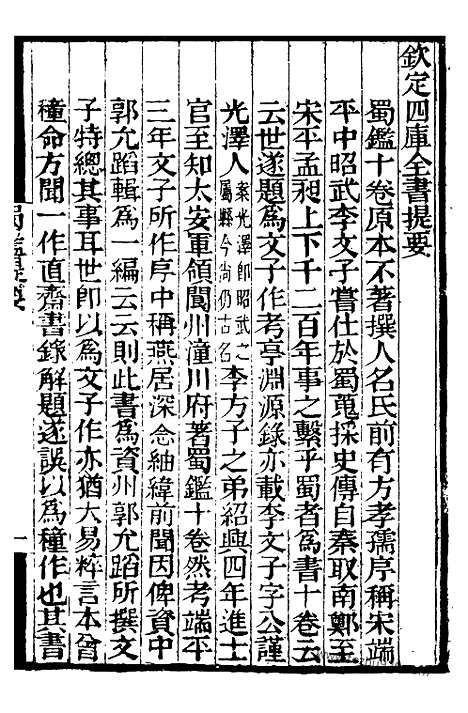 欽定四庫全書提要
蜀鑑十卷原本不著撰人名氏前有方孝孺序稱宋端
平中昭武李文子嘗仕於蜀蒐採史傳自秦取南鄭至
宋平孟昶上下千二百年事之繫乎蜀者為書十卷云
云世遂題為文子作考亭淵源錄亦載李文子字公謹
光澤人案光澤即昭武之屬縣今尚仍古名李方子之弟紹興四年進士
官至知太安軍領閬州潼川府著蜀鑑十卷然考端平
三年文子所作序中稱燕居深念紬緯前聞因俾資中
郭允蹈輯為一編云云則此書為資州郭允蹈所撰文
子特總其事耳世卽以為文子作亦猶大易粹言本曾
穜命方聞一作直齋書錄解題遂誤以為穜作也其書
蜀鑑提要
一